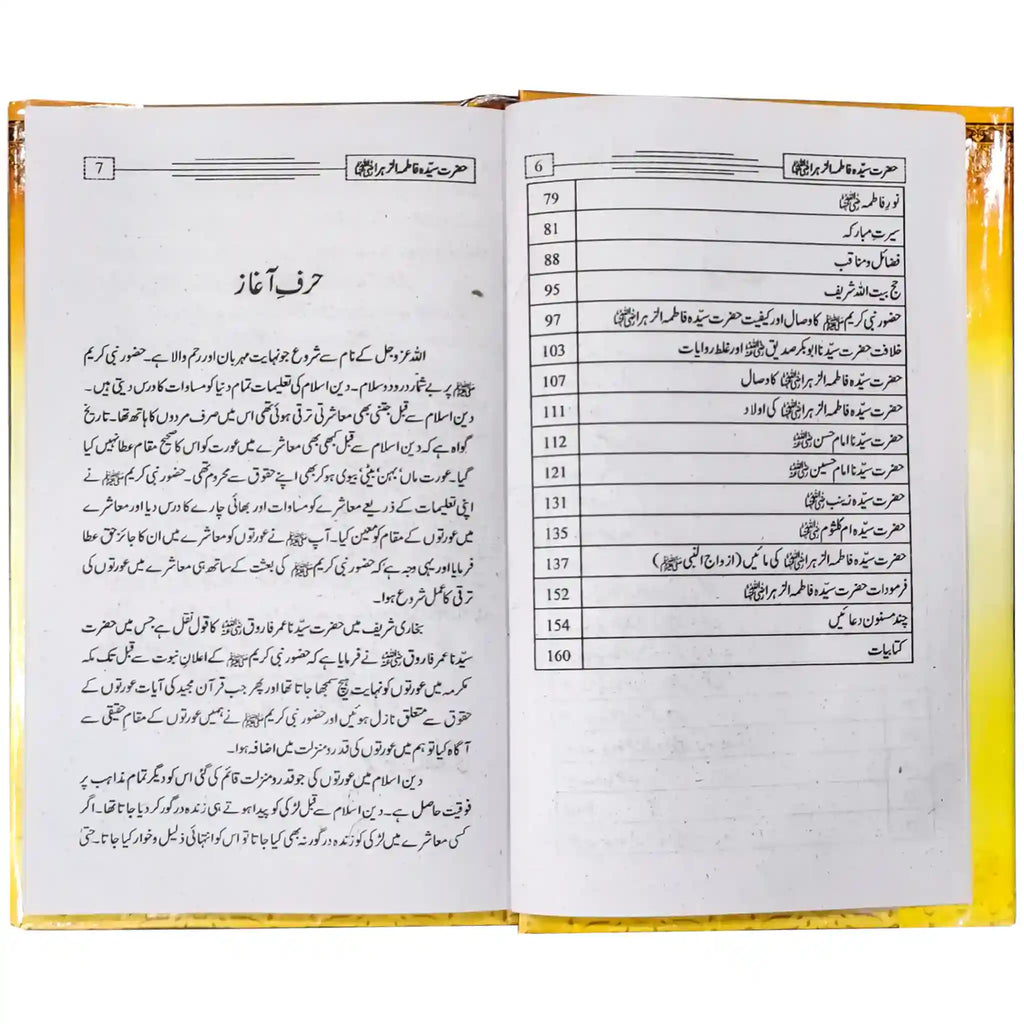 حضرت سیّدہ فاطمہ الزہرا رضی اللہ عنہا 6
نورِ فاطمہ رضی اللہ عنہا 79
سیرتِ مبارکہ 81
فضائل و مناقب 88
حج بیت اللہ شریف 95
حضور نبی کریم ﷺ کا وصال اور کیفیت حضرت سیّدہ فاطمہ الزہرا رضی اللہ عنہا 97
خلافت حضرت سیّدنا ابوبکر صدیق رضی اللہ عنہ اور غلط روایات 103
حضرت سیّدہ فاطمہ الزہرا رضی اللہ عنہا کا وصال 107
حضرت سیّدہ فاطمہ الزہرا رضی اللہ عنہا کی اولاد 111
حضرت سیّدنا امام حسن رضی اللہ عنہ 112
حضرت سیّدنا امام حسین رضی اللہ عنہ 121
حضرت سیّدہ زینب رضی اللہ عنہا 131
حضرت سیّدہ ام کلثوم رضی اللہ عنہا 135
حضرت سیّدہ فاطمہ الزہرا رضی اللہ عنہا کی مائیں (ازواج النبی ﷺ) 137
فرمودات حضرت سیّدہ فاطمہ الزہرا رضی اللہ عنہا 152
چند مسنون دعائیں 154
کتابیات 160
حضرت سیّدہ فاطمہ الزہرا رضی اللہ عنہا 7
حرفِ آغاز
اللہ عزوجل کے نام سے شروع جو نہایت مہربان اور رحم والا ہے۔ حضور نبی کریم
ﷺ پر بے شمار درود و سلام۔ دین اسلام کی تعلیمات تمام دنیا کو مساوات کا درس دیتی ہیں۔
دین اسلام سے قبل جتنی بھی معاشرتی ترقی ہوئی تھی اس میں صرف مردوں کا ہاتھ تھا۔ تاریخ
گواہ ہے کہ دین اسلام سے قبل کبھی بھی معاشرے میں عورت کو اس کا صحیح مقام عطا نہیں کیا
گیا۔ عورت ماں، بہن، بیٹی، بیوی ہو کر بھی اپنے حقوق سے محروم تھی۔ حضور نبی کریم ﷺ نے
اپنی تعلیمات کے ذریعے معاشرے کو مساوات اور بھائی چارے کا درس دیا اور معاشرے
میں عورتوں کے مقام کو معین کیا۔ آپ ﷺ نے عورتوں کو معاشرے میں ان کا جائز حق عطا
فرمایا اور یہی وجہ ہے کہ حضور نبی کریم ﷺ کی بعثت کے ساتھ ہی معاشرے میں عورتوں کی
ترقی کا عمل شروع ہوا۔
بخاری شریف میں حضرت سیّدنا عمر فاروق رضی اللہ عنہ کا قول نقل ہے جس میں حضرت
سیّدنا عمر فاروق رضی اللہ عنہ نے فرمایا ہے کہ حضور نبی کریم ﷺ کے اعلانِ نبوت سے قبل تک مکہ
مکرمہ میں عورتوں کو نہایت ہیچ سمجھا جاتا تھا اور پھر جب قرآن مجید کی آیات عورتوں کے
حقوق سے متعلق نازل ہوئیں اور حضور نبی کریم ﷺ نے ہمیں عورتوں کے مقامِ حقیقی سے
آگاہ کیا تو ہم میں عورتوں کی قدر و منزلت میں اضافہ ہوا۔
دین اسلام میں عورتوں کی جو قدر و منزلت قائم کی گئی اس کو دیگر تمام مذاہب پر
فوقیت حاصل ہے۔ دین اسلام سے قبل لڑکی کو پیدا ہوتے ہی زندہ درگور کر دیا جاتا تھا۔ اگر
کسی معاشرے میں لڑکی کو زندہ درگور نہ بھی کیا جاتا تو اس کو انتہائی ذلیل و خوار کیا جاتا۔ حتیٰ